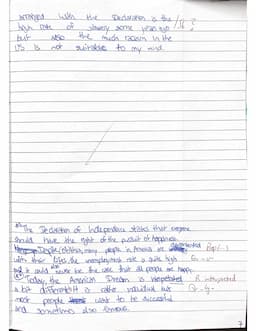 with the Declaration is the
high rate of slavery some years ago
but also the much racism in the
US is not suitable to my mind.
The Declaration of Independence states that everyone
should have the right of the pursuit of happiness.
many people in America are
with their lifes, the unemployment rate is quite high
it could never be the case that all people are happy.
Today, the American Dream is interpreted R interpreted
a bit different. It is rather individual but
most people want to be successful
and sometimes also famous.
7